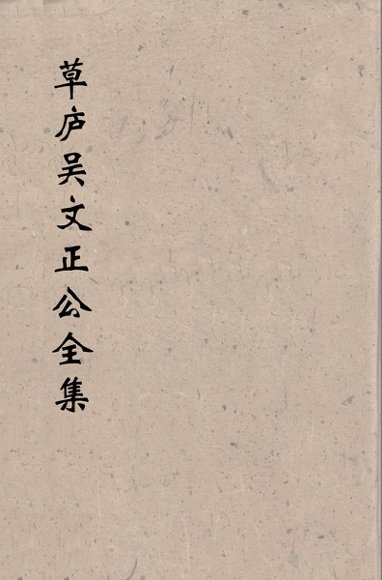 草庐吴文正公全集